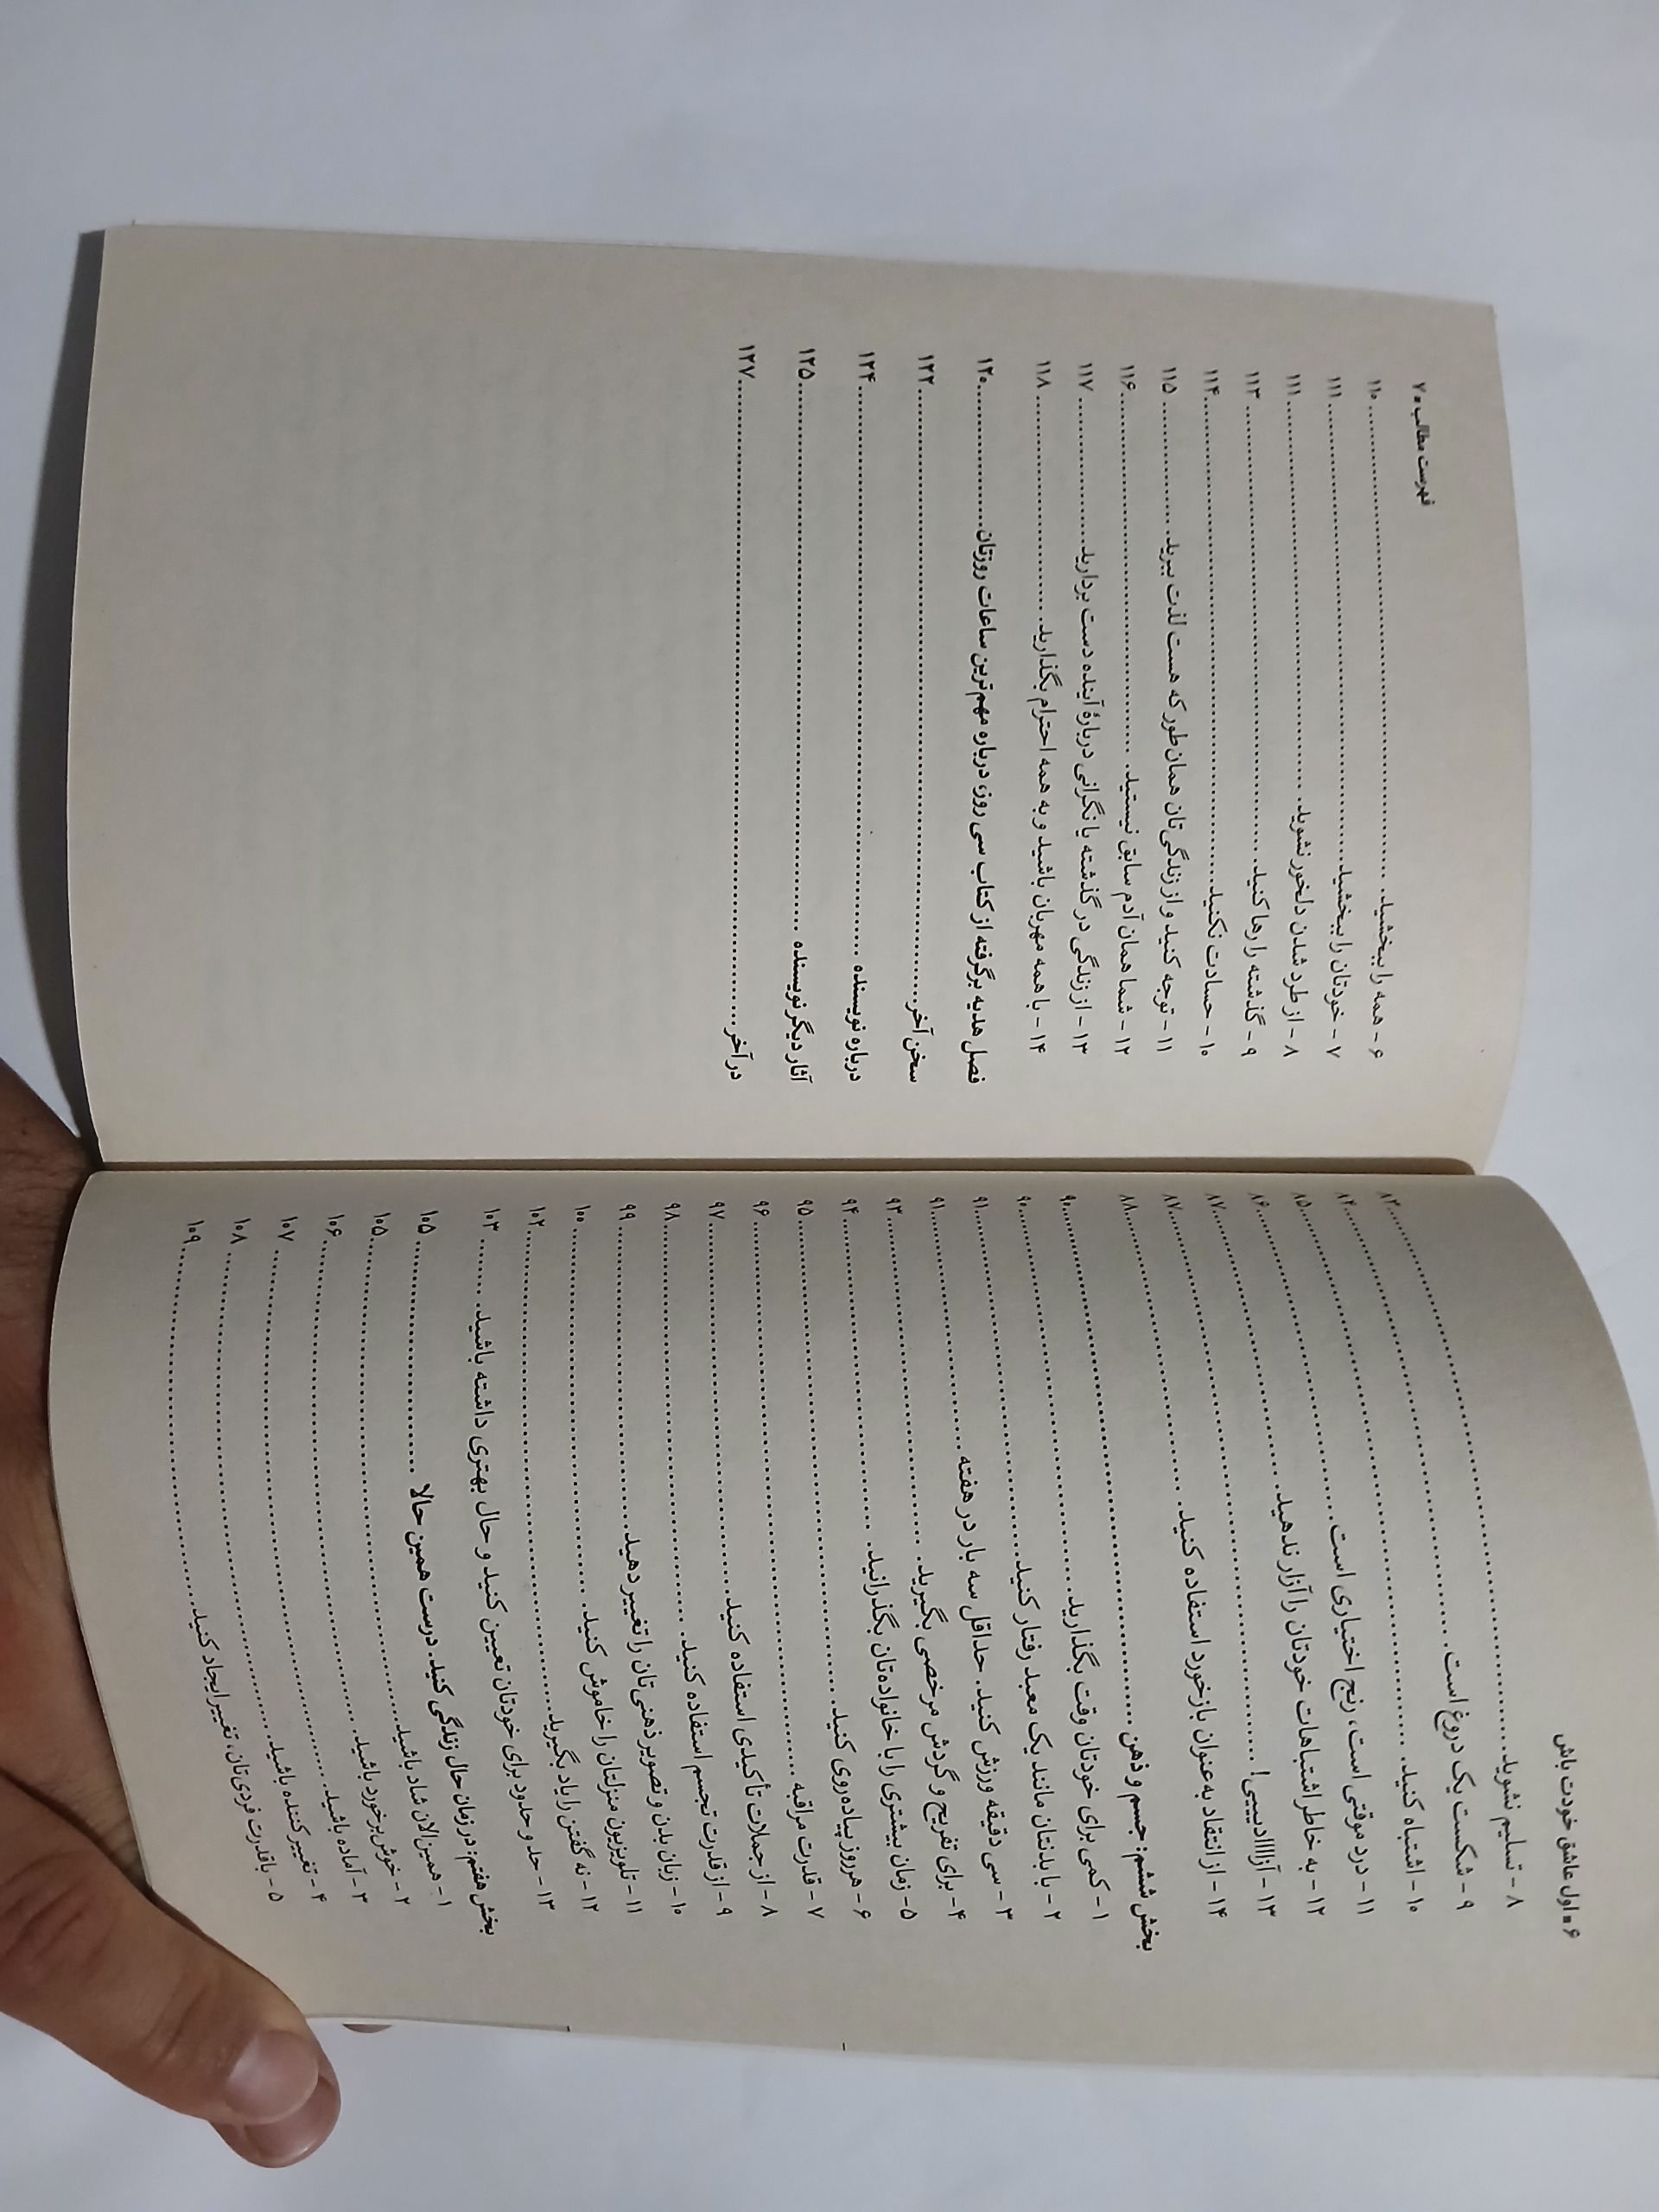 ۶ ■ اول عاشق خودت باش
۸ - تسلیم نشوید. ۸۳
۹ - شکست یک دروغ است. ۸۴
۱۰ - اشتباه کنید. ۸۴
۱۱ - درد موقتی است، رنج اختیاری است ۸۵
۱۲ - به خاطر اشتباهات خودتان را آزار ندهید. ۸۶
۱۳ - آزااادیییی! ۸۷
۱۴ - از انتقاد به‌عنوان بازخورد استفاده کنید. ۸۷
بخش ششم: جسم و ذهن ۸۸
۱ - کمی برای خودتان وقت بگذارید. ۹۰
۲ - با بدنتان مانند یک معبد رفتار کنید. ۹۰
۳ - سی دقیقه ورزش کنید. حداقل سه بار در هفته ۹۱
۴ - برای تفریح و گردش مرخصی بگیرید. ۹۱
۵ - زمان بیشتری را با خانواده‌تان بگذرانید. ۹۳
۶ - هر روز پیاده‌روی کنید. ۹۴
۷ - قدرت مراقبه ۹۵
۸ - از جملات تأکیدی استفاده کنید. ۹۶
۹ - از قدرت تجسم استفاده کنید. ۹۷
۱۰ - زبان بدن و تصویر ذهنی‌تان را تغییر دهید. ۹۸
۱۱ - تلویزیون منزلتان را خاموش کنید. ۹۹
۱۲ - نه گفتن را یاد بگیرید. ۱۰۰
۱۳ - حد و حدود برای خودتان تعیین کنید و حال بهتری داشته باشید. ۱۰۲
بخش هفتم: در زمان حال زندگی کنید. درست همین حالا ۱۰۳
۱ - همین الان شاد باشید. ۱۰۵
۲ - خوش‌برخورد باشید. ۱۰۵
۳ - آماده باشید. ۱۰۶
۴ - تغییرکننده باشید. ۱۰۷
۵ - با قدرت فردی‌تان، تغییر ایجاد کنید. ۱۰۸
۱۰۹
فهرست مطالب ■ ۷
۶ - همه را ببخشید. ۱۱۰
۷ - خودتان را ببخشید. ۱۱۱
۸ - از طرد شدن دلخور نشوید. ۱۱۱
۹ - گذشته را رها کنید. ۱۱۳
۱۰ - حسادت نکنید. ۱۱۴
۱۱ - توجه کنید و از زندگی‌تان همان‌طور که هست لذت ببرید. ۱۱۵
۱۲ - شما همان آدم سابق نیستید. ۱۱۶
۱۳ - از زندگی در گذشته یا نگرانی دربارهٔ آینده دست بردارید. ۱۱۷
۱۴ - با همه مهربان باشید و به همه احترام بگذارید. ۱۱۸
فصل هدیه برگرفته از کتاب سی روز، درباره مهم‌ترین ساعات روزتان ۱۲۰
سخن آخر ۱۲۲
درباره نویسنده ۱۲۴
آثار دیگر نویسنده ۱۲۵
در آخر ۱۲۷